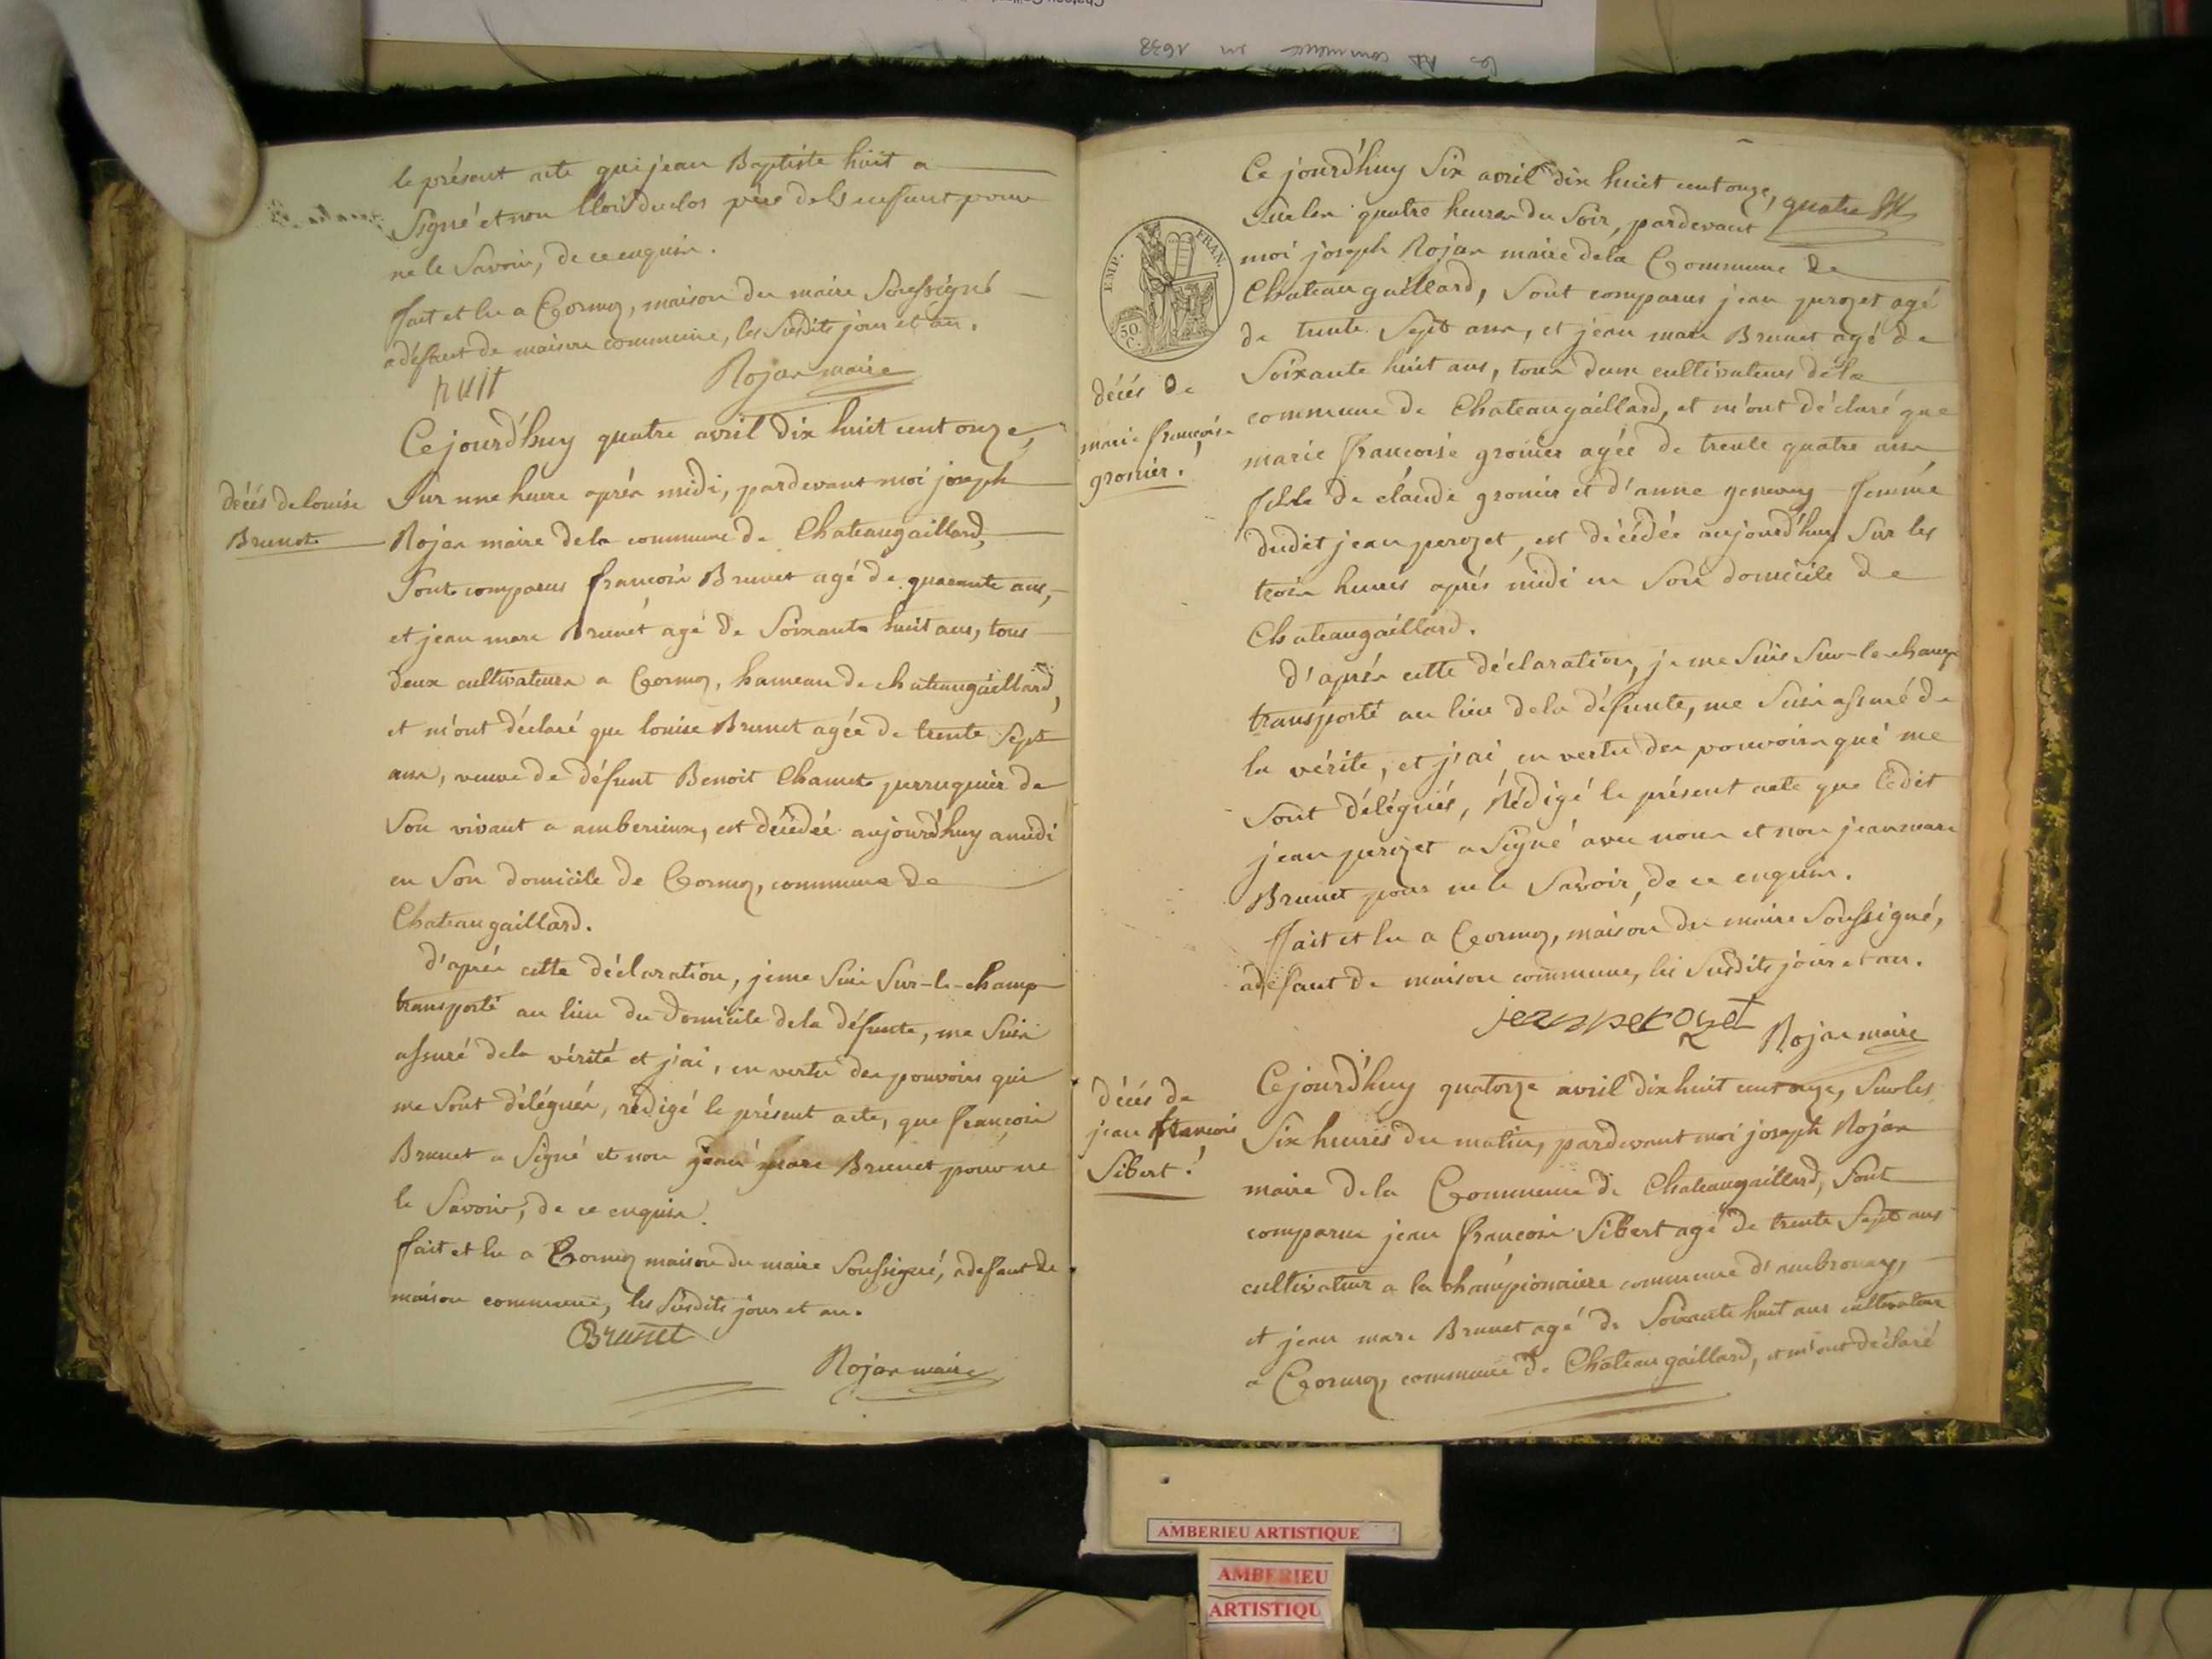 les RP commence en 1638
le présent acte qui jean Baptiste huit a
Signé et non duclos père de l'enfant pour
ne le Savoir, de ce enquis.
fait et lu a Cormoz, maison du maire Soussigné
a défaut de maison commune, les Susdits jour et an.
huit
Rojan maire
décès de louise
Brunet
Ce jourd'huy quatre avril dix huit cent onze,
Sur une heure après midi, pardevant moi joseph
Rojan maire dela commune de Chateaugaillard,
Sont comparus françois Brunet agé de quarante ans,
et jean marc Brunet agé de Soixante huit ans, tous
deux cultivateurs a Cormoz, hameau de chateaugaillard,
et m'ont déclaré que louise Brunet agée de trente Sept
ans, veuve de défunt Benoit Chamet perruquier de
Son vivant a amberieux, est décédée aujourd'huy a midi
en Son domicile de Cormoz, commune de
Chateaugaillard.
d'après cette déclaration, je me Suis Sur-le-champ
transporté au lieu du domicile dela défunte, me Suis
assuré dela vérité et j'ai, en vertu des pouvoirs qui
me Sont délégués, rédigé le présent acte, que françois
Brunet a Signé et non jean marc Brunet pour ne
le Savoir, de ce enquis.
fait et lu a Cormoz maison du maire Soussigné, a defaut de
maison commune, les Susdits jour et an.
Brunet
Rojan maire
EMP. FRAN.
50.
C.
Ce jourd'huy Six avril dix huit cent onze, quatre
Sur les quatre heures du Soir, pardevant
moi joseph Rojan maire dela Commune de
Chateaugaillard, Sont comparus jean perozet agé
de trente Sept ans, et jean marc Brunet agé de
Soixante huit ans, tous deux cultivateurs dela
décés de
marie françoise
gronier.
commune de Chateaugaillard, et m'ont déclaré que
marie francoise gronier agée de trente quatre ans
fille de claude gronier et d'anne genevay femme
dudit jean perozet, est décédée aujourd'huy Sur les
trois heures après midi en Son domicile de
Chateaugaillard.
d'après cette déclaration, je me Suis Sur-le-champ
transporté au lieu dela défunte, me Suis assuré de
la vérité, et j'ai en vertu des pouvoirs qui me
Sont délégués, rédigé le présent acte que ledit
jean perozet a Signé avec nous et non jean marc
Brunet pour ne le Savoir, de ce enquis.
fait et lu a Cormoz, maison du maire Soussigné,
a defaut de maison commune, les Susdits jour et an.
jean perozet
Rojan maire
décés de
jean francois
Sibert.
Ce jourd'huy quatorze avril dix huit cent onze, Sur les
Six heures du matin, pardevant moi joseph Rojan
maire dela Commune de Chateaugaillard, Sont
comparus jean francois Sibert agé de trente Sept ans
cultivateur a la championniere commune d'ambronay,
et jean marc Brunet agé de Soixante huit ans cultivateur
a Cormoz, commune de Chateaugaillard, et m'ont déclaré
AMBERIEU ARTISTIQUE
AMBERIEU
ARTISTIQU